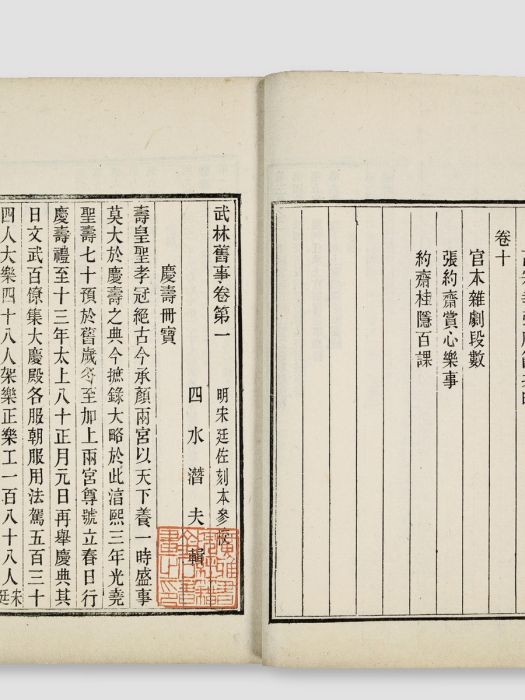 卷十
官本雜劇段數
張約齋賞心樂事
約齋桂隱百課
武林舊事卷第一 明宋廷佐刻本參校
四水潛夫輯
慶壽冊寶
壽皇聖孝冠絕古今承顏兩宮以天下養一時盛事
莫大於慶壽之典今摭錄大略於此湻熙三年光堯
聖壽七十預於舊歲冬至加上兩宮尊號立春日行
慶壽禮至十三年太上八十正月元日再舉慶典其
日文武百僚集大慶殿各服朝服用法駕五百三十
四人大樂四十八人架樂正樂工一百八十八人宋廷